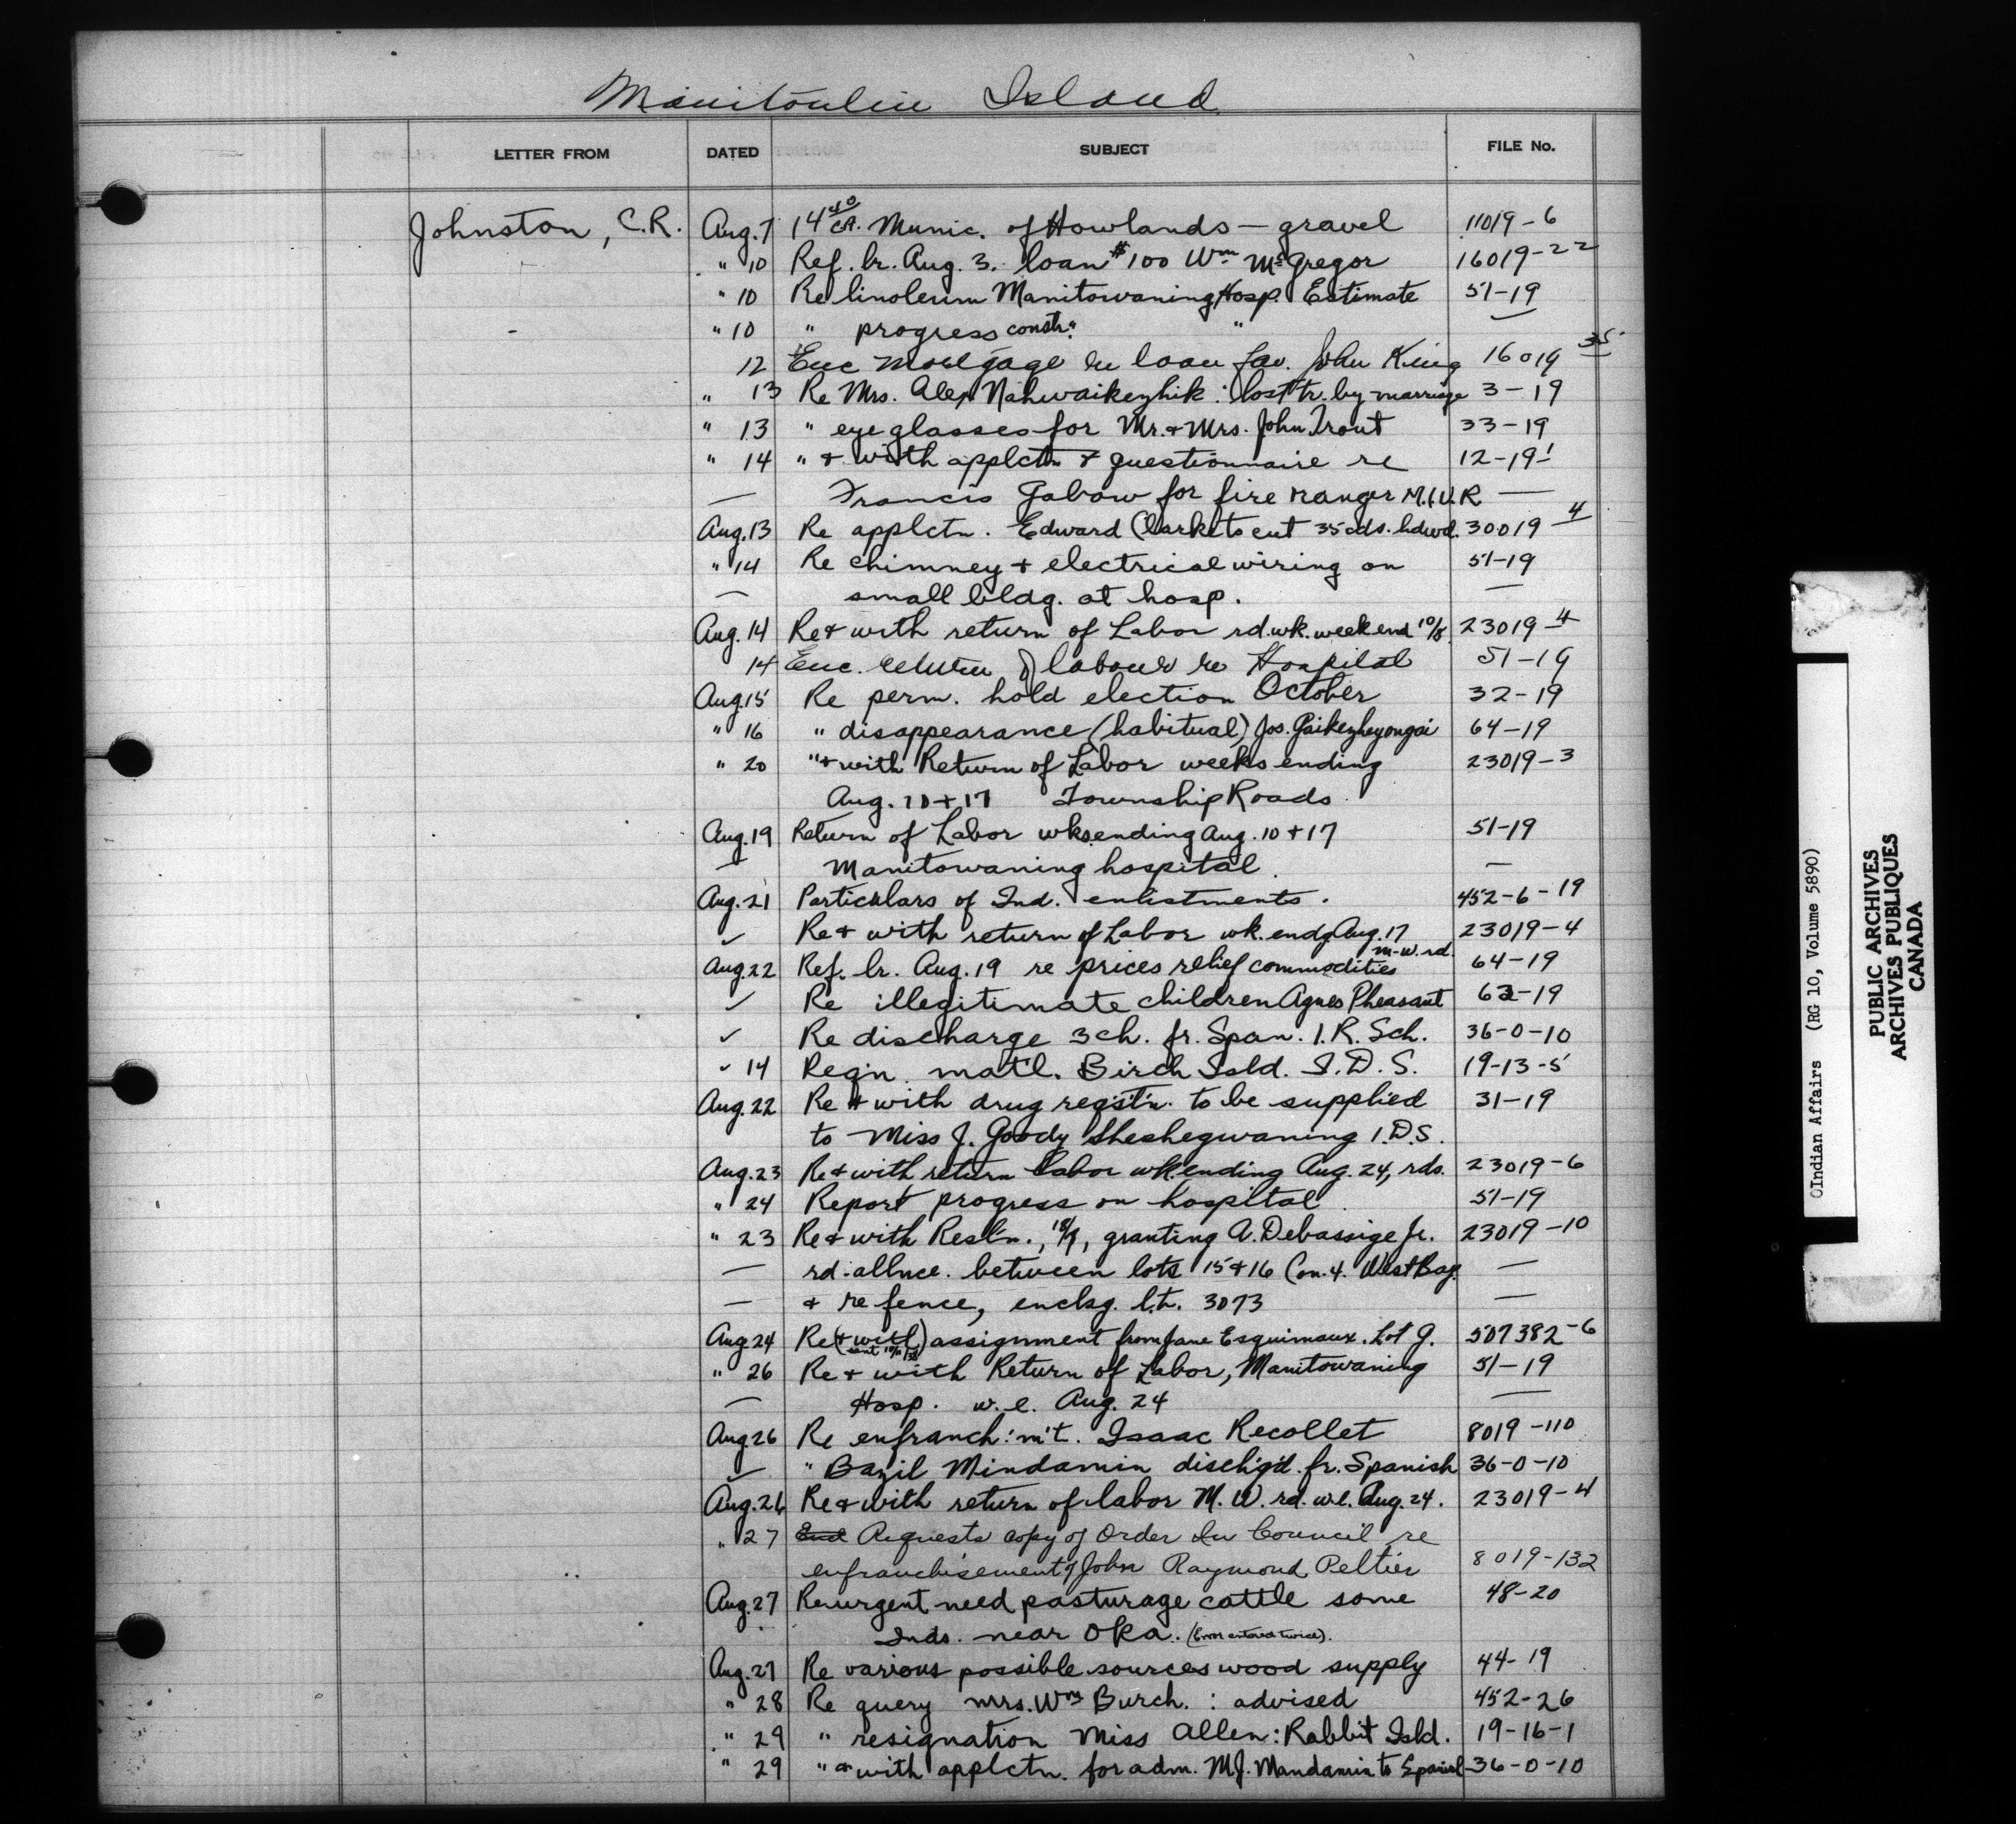 Manitoulin Island
LETTER FROM DATED SUBJECT FILE No.
Johnston, C.R. Aug. 7 14 40 CA. Munic. of Howlands — gravel 11019-6
" 10 Ref. lr. Aug. 3. loan $100 Wm McGregor 16019-22
" 10 Re linoleum Manitowaning Hosp. Estimate 51-19
" 10 " progress constr. "
12 Enc Mortgage re loan fav. John King 16019 35
" 13 Re Mrs. Alex Nahwaikezhik : lost tr. by marriage 3-19
" 13 " eye glasses for Mr. + Mrs. John Trout 33-19
" 14 " + with applctn + questionnaire re 12-19
— Francis Gabow for fire ranger M.I.U.R. —
Aug. 13 Re applctn. Edward Clarke to cut 35 cds. hdwd. 30019-4
" 14 Re chimney + electrical wiring on 51-19
— small bldg. at hosp. —
Aug. 14 Re + with return of Labor rd. wk. week end 10/8 23019-4
14 Enc. return of labour re Hospital 51-19
Aug. 15 Re perm. hold election October 32-19
" 16 " disappearance (habitual) Jos. 64-19
" 20 " + with Return of Labor weeks ending 23019-3
Aug. 10 + 17 Township Roads
Aug. 19 Return of Labor wks. ending Aug. 10 + 17 51-19
— Manitowaning hospital. —
Aug. 21 Particulars of Ind. enlistments. 452-6-19
✓ Re + with return of Labor wk. endg Aug. 17 23019-4
m-w. rd.
Aug. 22 Ref. lr. Aug. 19 re prices relief commodities 64-19
✓ Re illegitimate children Agnes Pheasant 63-19
✓ Re discharge 3 ch. fr. Span. I.R. Sch. 36-0-10
✓ 14 Reqn. mat'l. Birch Isld. I.D.S. 19-13-5
Aug. 22 Re + with drug reqstn. to be supplied 31-19
to Miss J. Goody Sheshegwaning I.D.S.
Aug. 23 Re + with return labor wk. ending Aug. 24, rds. 23019-6
" 24 Report progress on hospital. 51-19
" 23 Re + with Resl'n., 18/8, granting A. Debassige Jr. 23019-10
— rd. allnce. between lots 15 + 16 Con. 4. West Bay. —
— + re fence, enclsg. l.t. 3073 —
Aug 24 Re (+ with) assignment from Jane Esquimaux. Lot 9. 507382-6
" 26 Re + with Return of Labor, Manitowaning 51-19
— Hosp. w.e. Aug. 24 —
Aug 26 Re enfranch'm't. Isaac Recollet 8019-110
✓ " Bazil Mindamin disch'g'd. fr. Spanish 36-0-10
Aug. 26 Re + with return of labor M.W. rd. w.e. Aug. 24. 23019-4
" 27 Requests copy of Order In Council re
enfranchisement of John Raymond Peltier 8019-132
Aug. 27 Re urgent need pasturage cattle some 48-20
Inds. near Oka. (Error entered twice).
Aug. 27 Re various possible sources wood supply 44-19
" 28 Re query Mrs. Wm Burch. : advised 452-26
" 29 " resignation Miss Allen: Rabbit Isld. 19-16-1
" 29 " + with applctn. for adm. M.J. Mandamin to Spanish 36-0-10
Indian Affairs (RG 10, Volume 5890)
PUBLIC ARCHIVES
ARCHIVES PUBLIQUES
CANADA